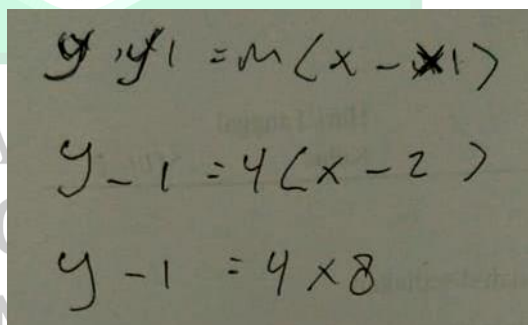 y, y1 = m(x - x1)
y - 1 = 4(x - 2)
y - 1 = 4x8